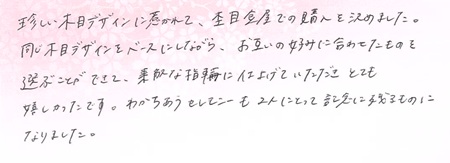 珍しい木目デザインに惹かれて、杢目金屋での購入を決めました。
同じ木目デザインをベースにしながら、お互いの好みに合わせたものを
選ぶことができて、素敵な指輪に仕上げていただきとても
嬉しかったです。わかちあうセレモニーも2人にとって記念に残るものに
なりました。